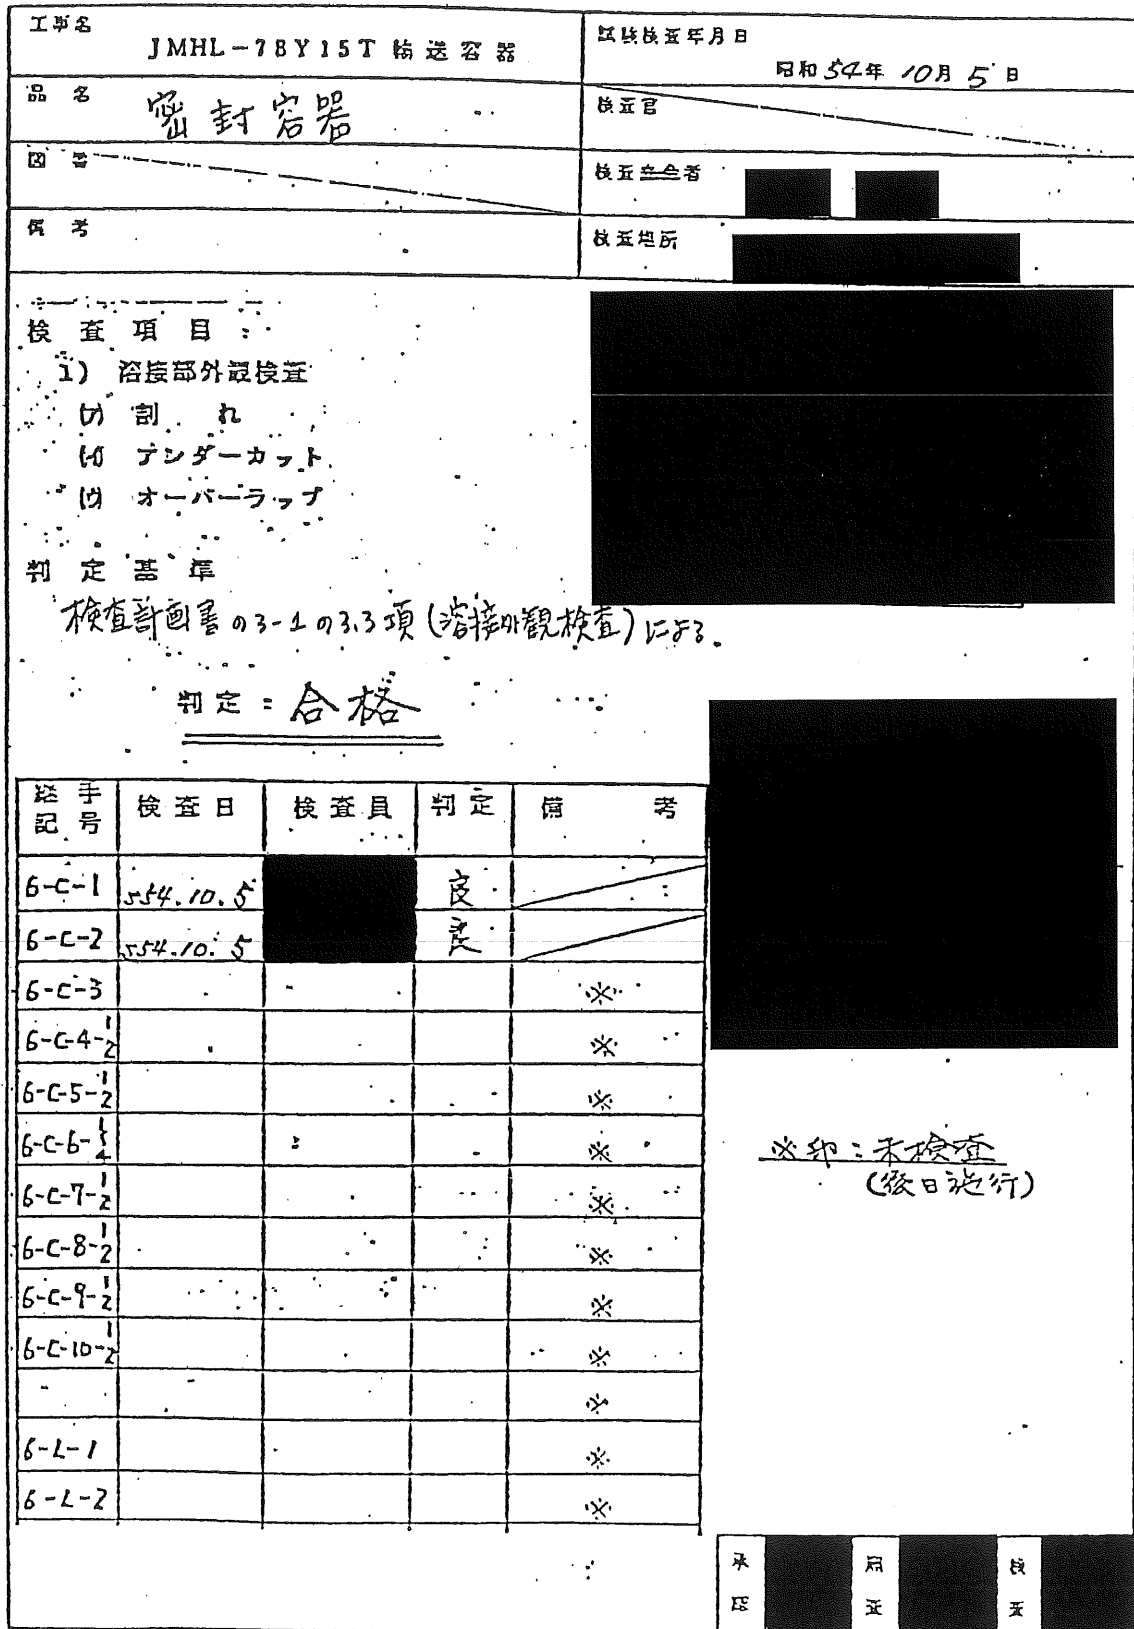 工事名
JMHL-78Y15T 輸送容器
試験検査年月日
昭和54年 10月 5日
品名
密封容器
検査官
図番
検査立会者
備考
検査場所
検査項目:
1) 溶接部外観検査
(ア) 割れ
(イ) アンダーカット
(ウ) オーバーラップ
判定基準
検査計画書の3-1の3.3項(溶接外観検査)による。
判定:合格
継手記号 検査日 検査員 判定 備考
6-C-1 S54.10.5 良
6-C-2 S54.10.5 良
6-C-3 ※
6-C-4-1/2 ※
6-C-5-1/2 ※
6-C-6-1/4 ※
6-C-7-1/2 ※
6-C-8-1/2 ※
6-C-9-1/2 ※
6-C-10-1/2 ※
※
6-L-1 ※
6-L-2 ※
※印:未検査
(後日施行)
承認 検査